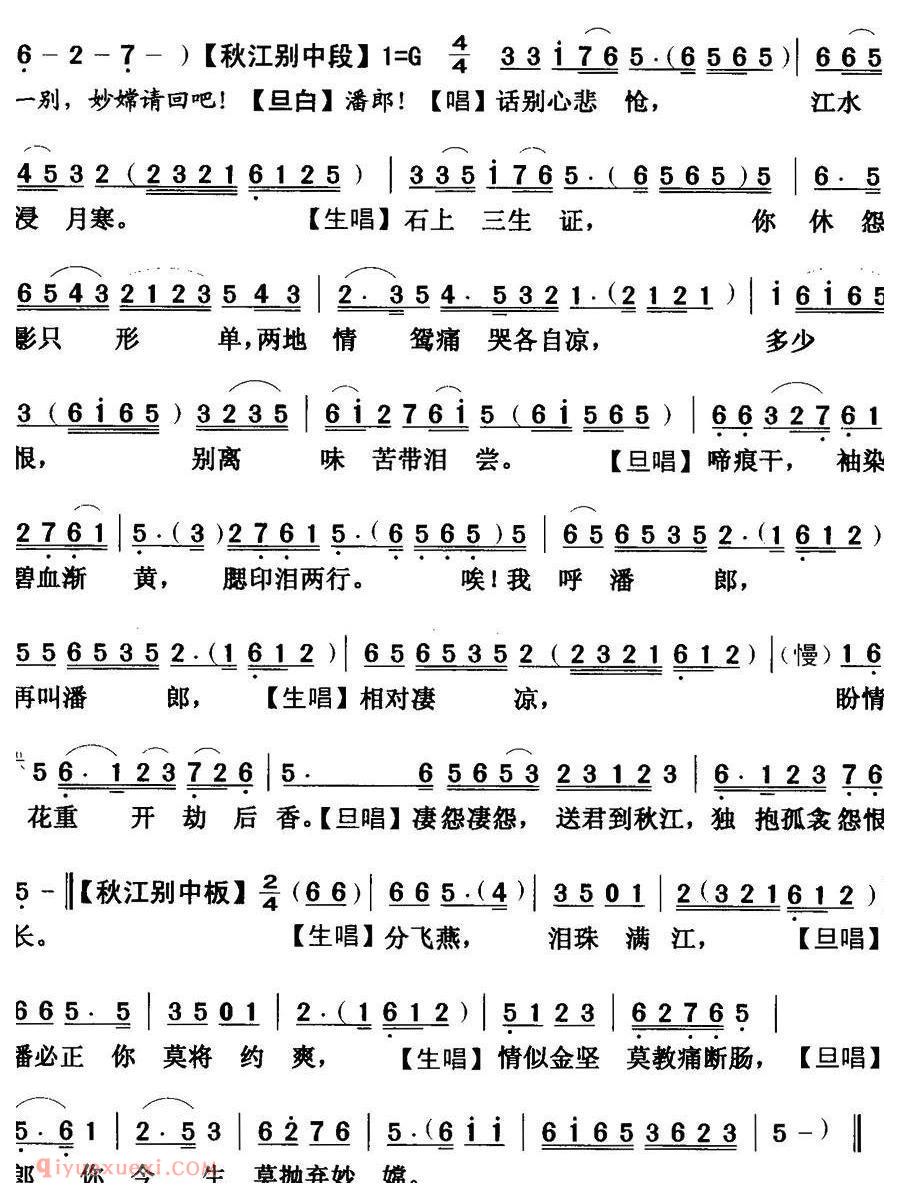 6 - 2 - 7 - ）【秋江别中段】1=G 4/4 3 3 i 7 6 5·（6 5 6 5）| 6 6 5
一别，妙嫦请回吧！【旦白】潘郎！【唱】话别心悲怆， 江水
4 5 3 2（2 3 2 1 6 1 2 5）| 3 3 5 i 7 6 5·（6 5 6 5）5 | 6· 5
浸月寒。 【生唱】石上三生证， 你休怨
6 5 4 3 2 1 2 3 5 4 3 | 2· 3 5 4· 5 3 2 1·（2 1 2 1）| i 6 i 6 5
影只形单，两地情鸳痛哭各自凉， 多少
3（6 i 6 5）3 2 3 5 | 6 i 2 7 6 i 5（6 i 5 6 5）| 6 6 3 2 7 6 1
恨， 别离味苦带泪尝。 【旦唱】啼痕干，袖染
2 7 6 1 | 5·（3）2 7 6 1 5·（6 5 6 5）5 | 6 5 6 5 3 5 2·（1 6 1 2）
碧血渐黄， 腮印泪两行。 唉！我呼潘郎，
5 5 6 5 3 5 2·（1 6 1 2）| 6 5 6 5 3 5 2（2 3 2 1 6 1 2）|（慢）1 6
再叫潘郎， 【生唱】相对凄凉， 盼情
5 6· 1 2 3 7 2 6 | 5· 6 5 6 5 3 2 3 1 2 3 | 6· 1 2 3 7 6
花重开劫后香。【旦唱】凄怨凄怨，送君到秋江，独抱孤衾怨恨
5 - ‖【秋江别中板】2/4（6 6）| 6 6 5·（4）| 3 5 0 1 | 2（3 2 1 6 1 2）
长。 【生唱】分飞燕， 泪珠满江， 【旦唱】
6 6 5· 5 | 3 5 0 1 | 2·（1 6 1 2）| 5 1 2 3 | 6 2 7 6 5 |
潘必正你莫将约爽， 【生唱】情似金坚莫教痛断肠，【旦唱】
5· 6 1 | 2· 5 3 | 6 2 7 6 | 5·（6 i i | 6 i 6 5 3 6 2 3 | 5 -）‖
郎你今生莫抛弃妙嫦。
qiyuexuexi.com